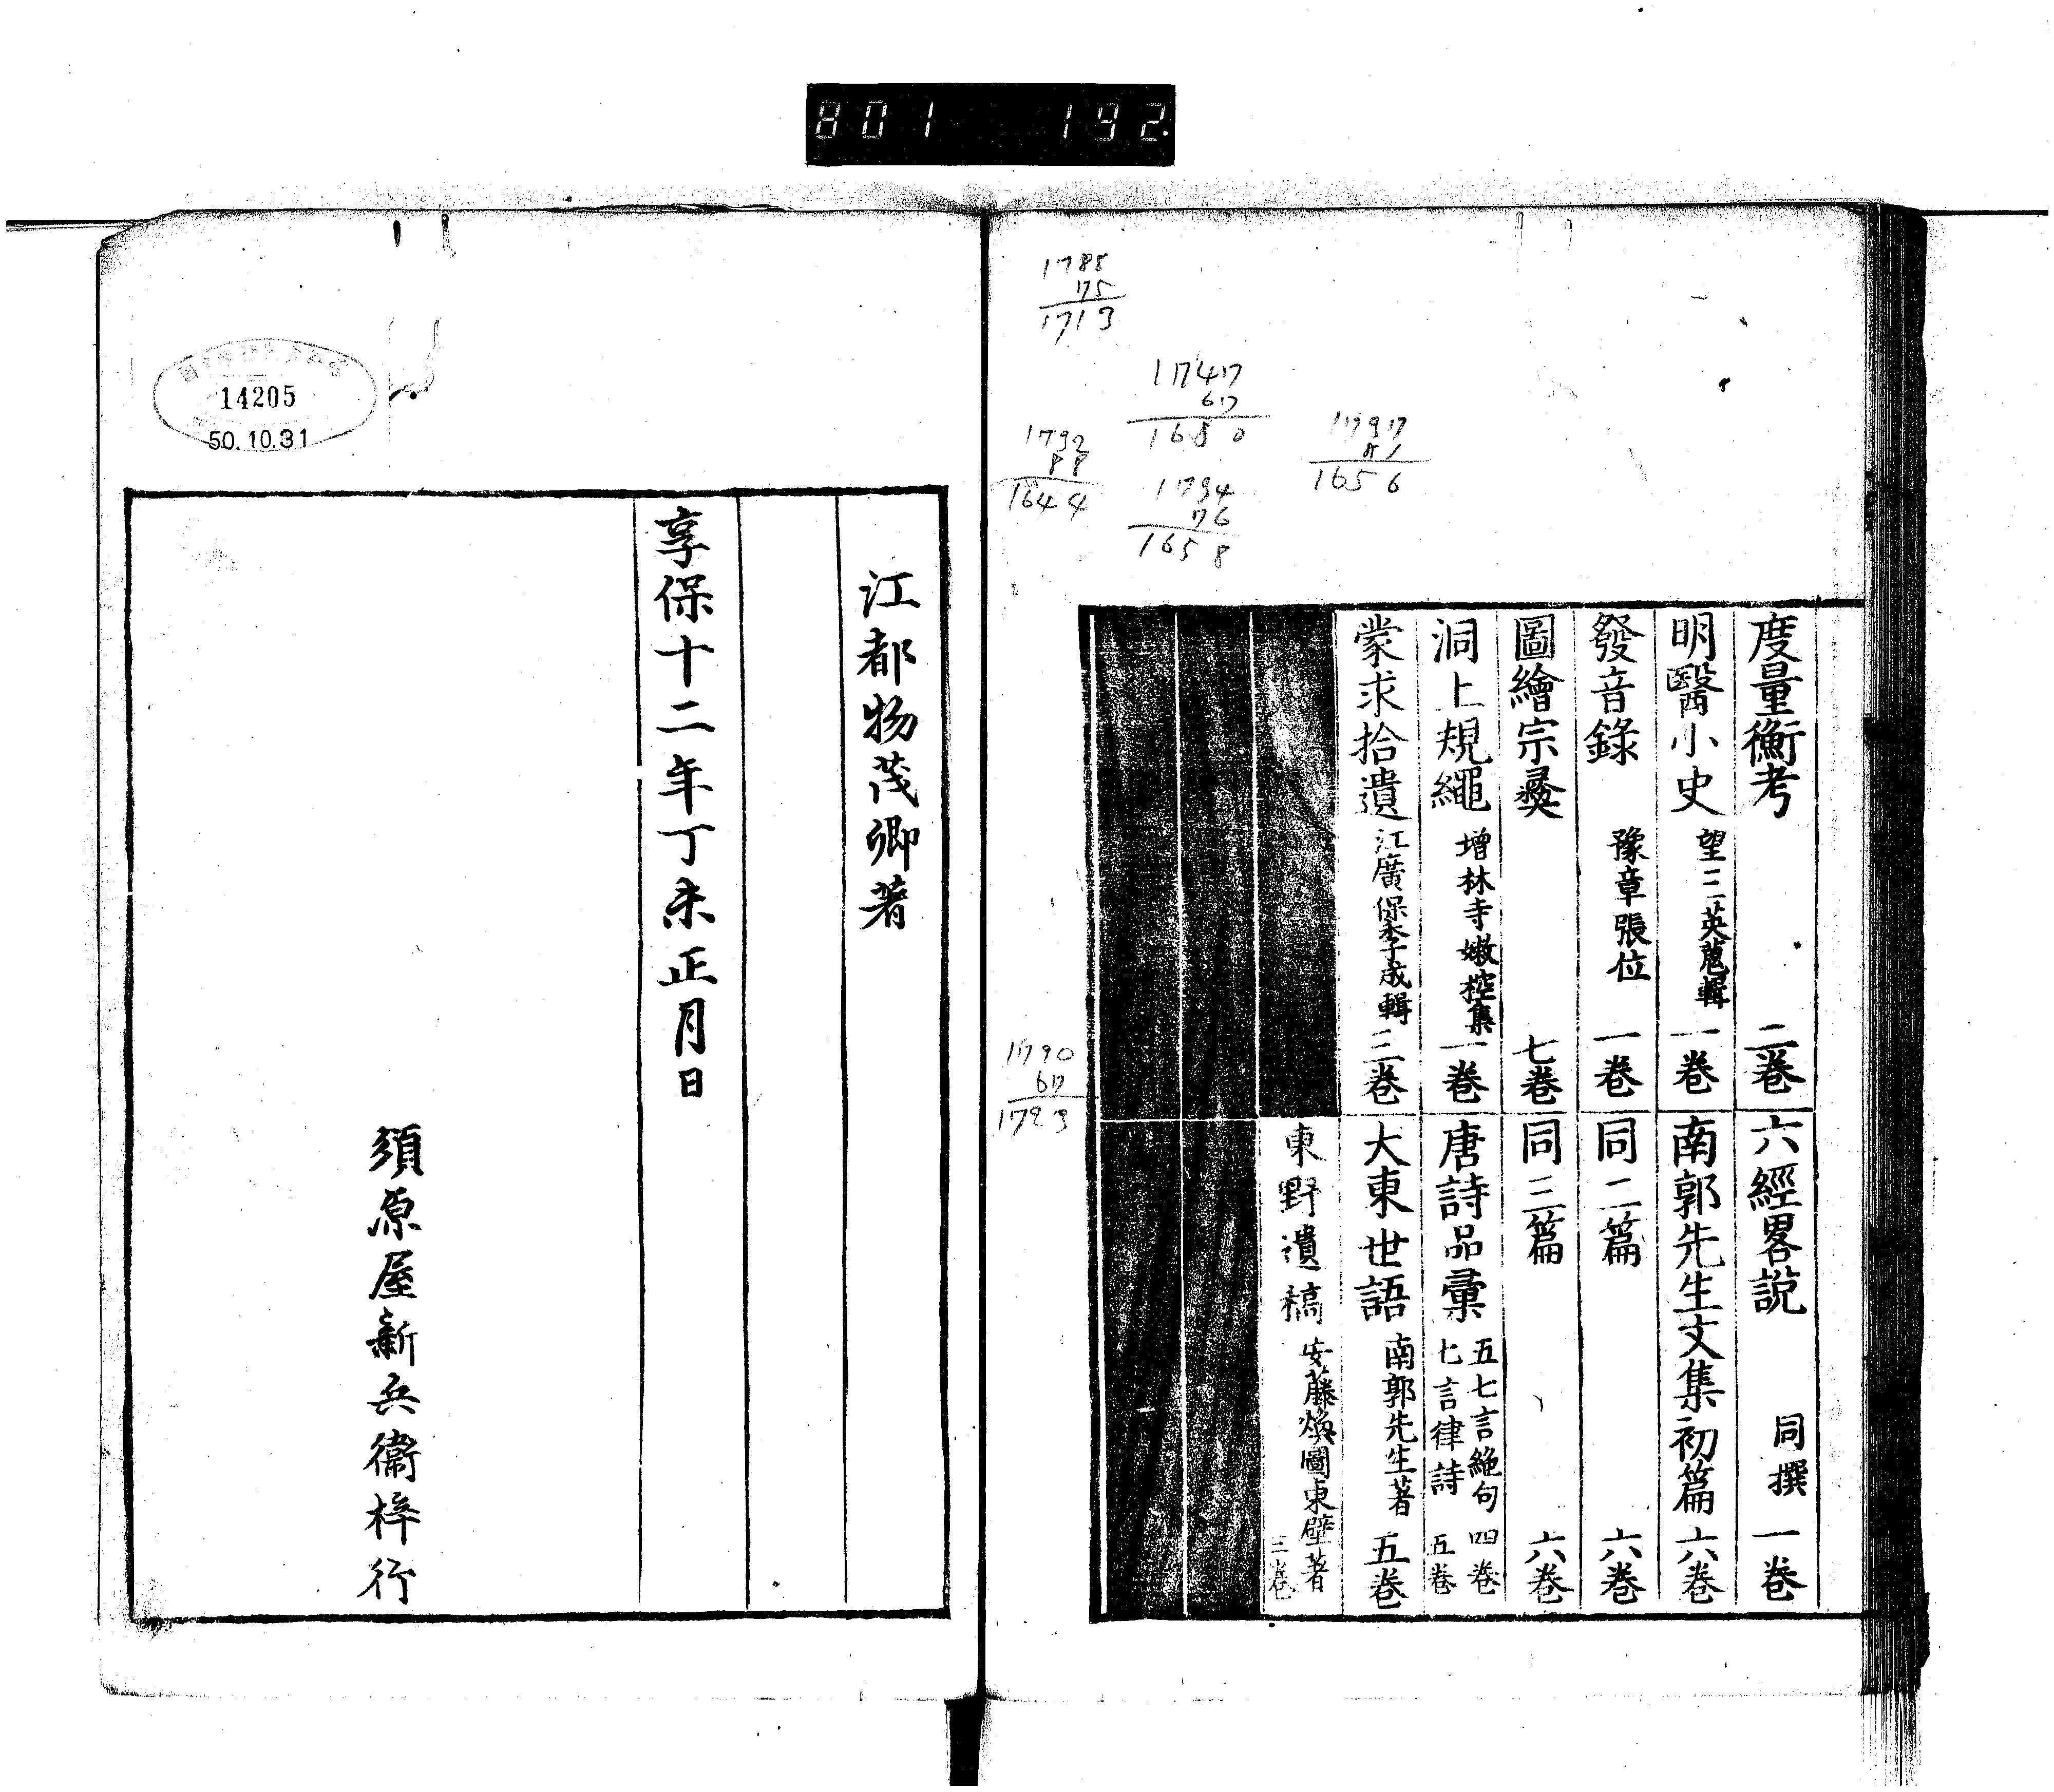 801 192.
1788
75
1713
1747
67
1680
1797
1656
1792
88
1644
1734
76
1658
1790
67
1723
度量衡考 二卷
明醫小史 望三英輯 一卷
發音錄 豫章張位 一卷
圖繪宗彝 七卷
洞上規繩 增林寺嫩桂集 一卷
蒙求拾遺 江廣保李子成輯 三卷
六經畧說 同撰 一卷
南郭先生文集初篇 六卷
同二篇 六卷
同三篇 六卷
唐詩品彙 五七言絶句 四卷
七言律詩 五卷
大東世語 南郭先生著 五卷
東野遺稿 安藤煥圖東壁著 三卷
14205
50.10.31
江都物茂卿著
享保十二年丁未正月日
須原屋新兵衞梓行